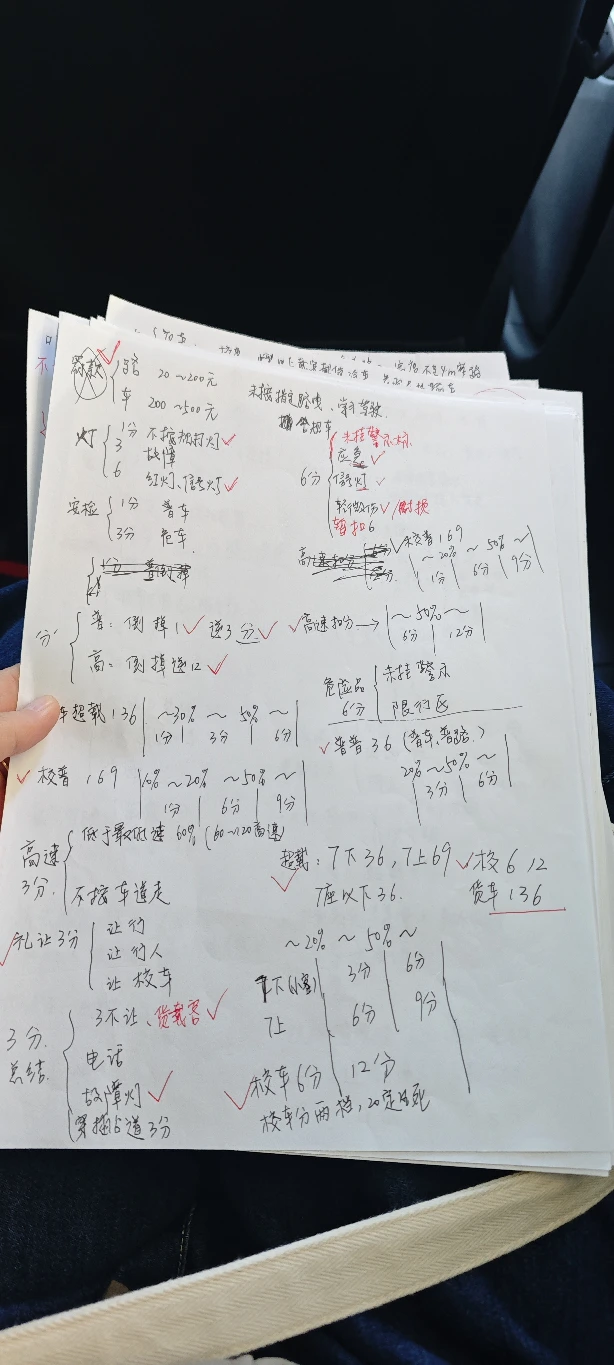 路 20~200元
车 200~500元
灯
1分 不按规打灯
3 故障
6 红灯、信号灯
安检
1分 普车
3分 危车
6分
未挂警示标
应急
信号灯
轻微伤 / 财损
暂扣6
校普 169
~20% ~ 50% ~
1分 6分 9分
分
普: 倒掉1 逆3分
高: 倒掉逆12
高速扣分→
~50%~
6分 12分
危险品 6分
未挂警示
限行区
车超载 136
~30% ~ 50% ~
1分 3分 6分
普普36 (普车、普路)
20%~50%~
3分 6分
校普 169
10% ~20% ~50% ~
1分 6分 9分
高速 3分
低于最低速 60% (60~120高速)
不按车道走
超载: 7下36, 7上69
7座以下36.
校612
货车136
礼让3分
让行
让行人
让校车
~20% ~ 50% ~
7下(小客) 3分 6分
7上 6分 9分
校车6分 12分
校车分两档, 20定生死
3分. 总结.
3不让、货载客
电话
故障灯
穿插占道3分